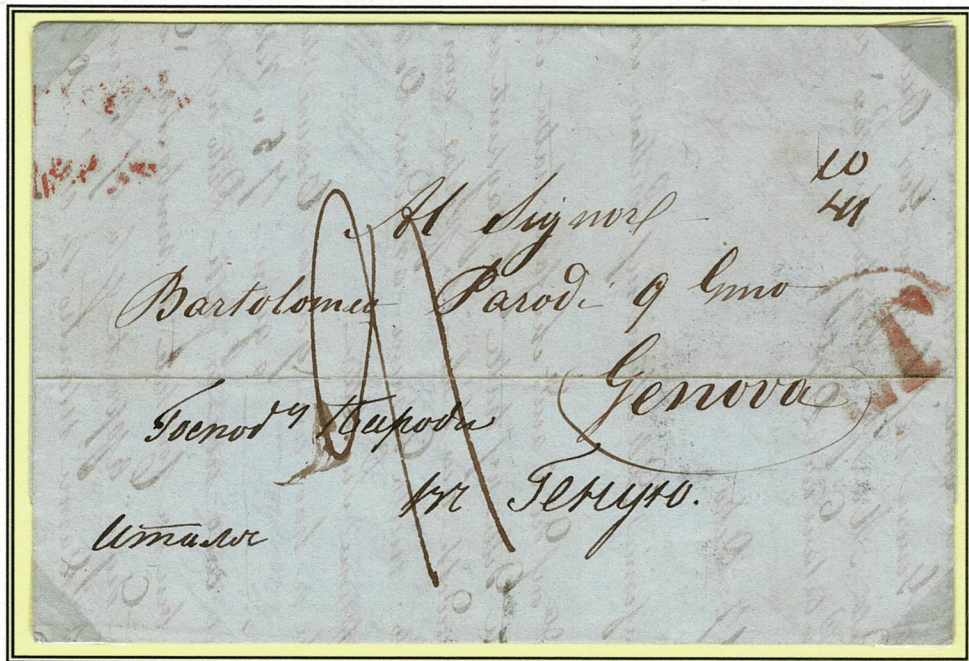 10
Al Signor
Bartolomeo Parodi q Gmo
Genova
Господ^у Пароди
въ Геную.
Италя